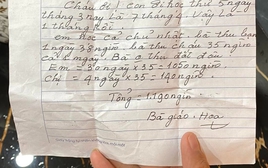 Cháu ơi! con đi học thứ 5 ngày
tháng 3 này là 7 tháng 4. Vậy là
1 tháng rồi
em học cả chủ nhật. bà thu bạn
1 ngày 38 ngìn. bà thu cháu 35 ngìn
cả ngày. Bà thu
Em = 30 ngày x 35 = 1050 ngìn.
Chị = 4 ngày x 35 = 140 ngìn.
Tổng = 1.190 ngìn
Bà giáo. Hoa